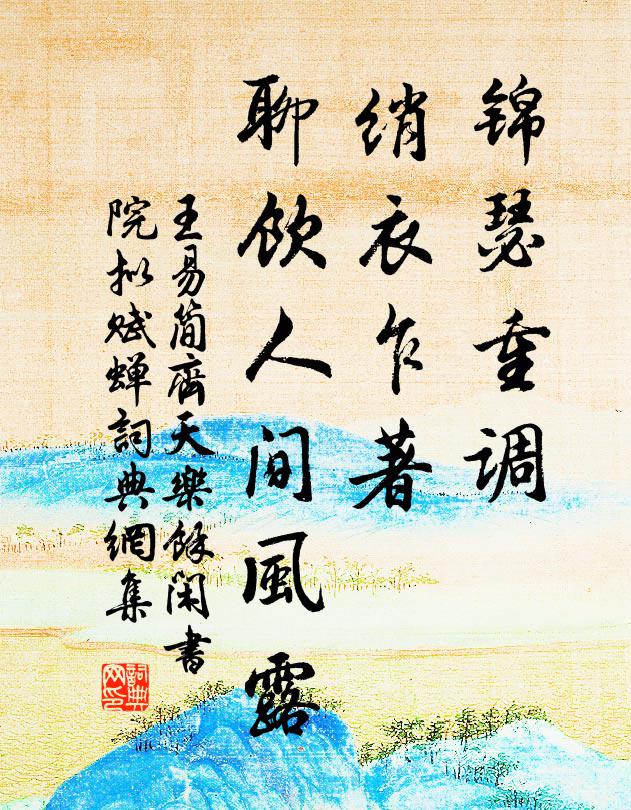 锦瑟重调
绡衣乍著
聊饮人间風露
王易简齊天樂餘闲書
院拟赋蝉詞典網集
詞典
网印